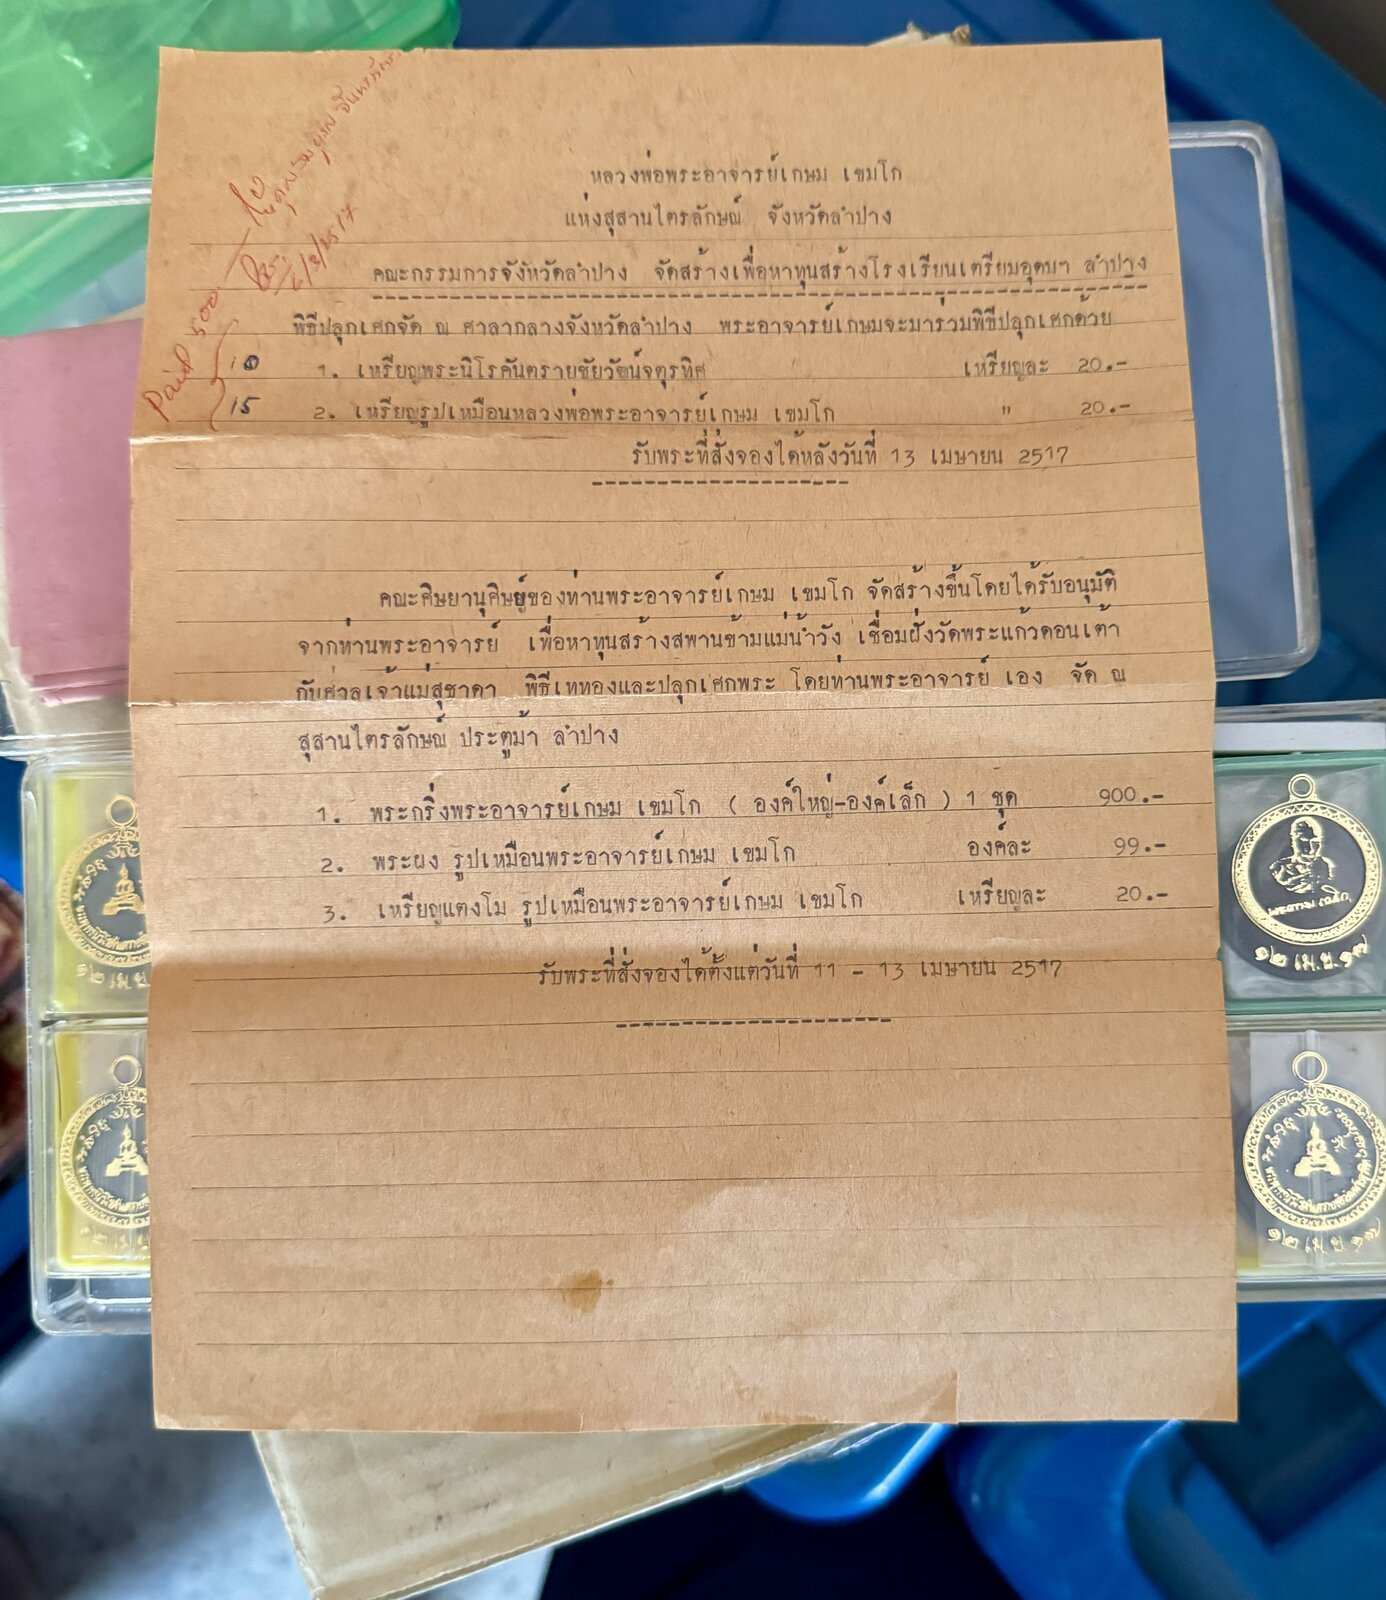 หลวงพ่อพระอาจารย์เกษม เขมโก
แห่งสุสานไตรลักษณ์ จังหวัดลำปาง
คณะกรรมการจังหวัดลำปาง จัดสร้างเพื่อหาทุนสร้างโรงเรียนเตรียมอุดมฯ ลำปาง
พิธีปลุกเศกจัด ณ ศาลากลางจังหวัดลำปาง พระอาจารย์เกษมจะมาร่วมพิธีปลุกเศกด้วย
10 1. เหรียญพระนิโรคันตรายชัยวัฒน์จตุรทิศ เหรียญละ 20.-
15 2. เหรียญรูปเหมือนหลวงพ่อพระอาจารย์เกษม เขมโก " 20.-
รับพระที่สั่งจองได้หลังวันที่ 13 เมษายน 2517
คณะศิษยานุศิษย์ของท่านพระอาจารย์เกษม เขมโก จัดสร้างขึ้นโดยได้รับอนุมัติ
จากท่านพระอาจารย์ เพื่อหาทุนสร้างสพานข้ามแม่น้ำวัง เชื่อมฝั่งวัดพระแก้วดอนเต้า
กับศาลเจ้าแม่สุชาดา พิธีเททองและปลุกเศกพระ โดยท่านพระอาจารย์ เอง จัด ณ
สุสานไตรลักษณ์ ประตูม้า ลำปาง
1. พระกริ่งพระอาจารย์เกษม เขมโก ( องค์ใหญ่-องค์เล็ก ) 1 ชุด 900.-
2. พระผง รูปเหมือนพระอาจารย์เกษม เขมโก องค์ละ 99.-
3. เหรียญแตงโม รูปเหมือนพระอาจารย์เกษม เขมโก เหรียญละ 20.-
รับพระที่สั่งจองได้ตั้งแต่วันที่ 11 - 13 เมษายน 2517
Paid 500
๑๒ เม.ย.
๑๒ เม.ย.
๑๒ เม.ย.๑๗
๑๒ เม.ย.๑๗